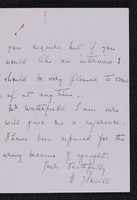 you require but if you
would like an interview I
should be very pleased to come
up at any time.
Mr Waterfield I am sure
will give me a reference.
I have been refused for the
army because of eyesight.
Yours Faithfully